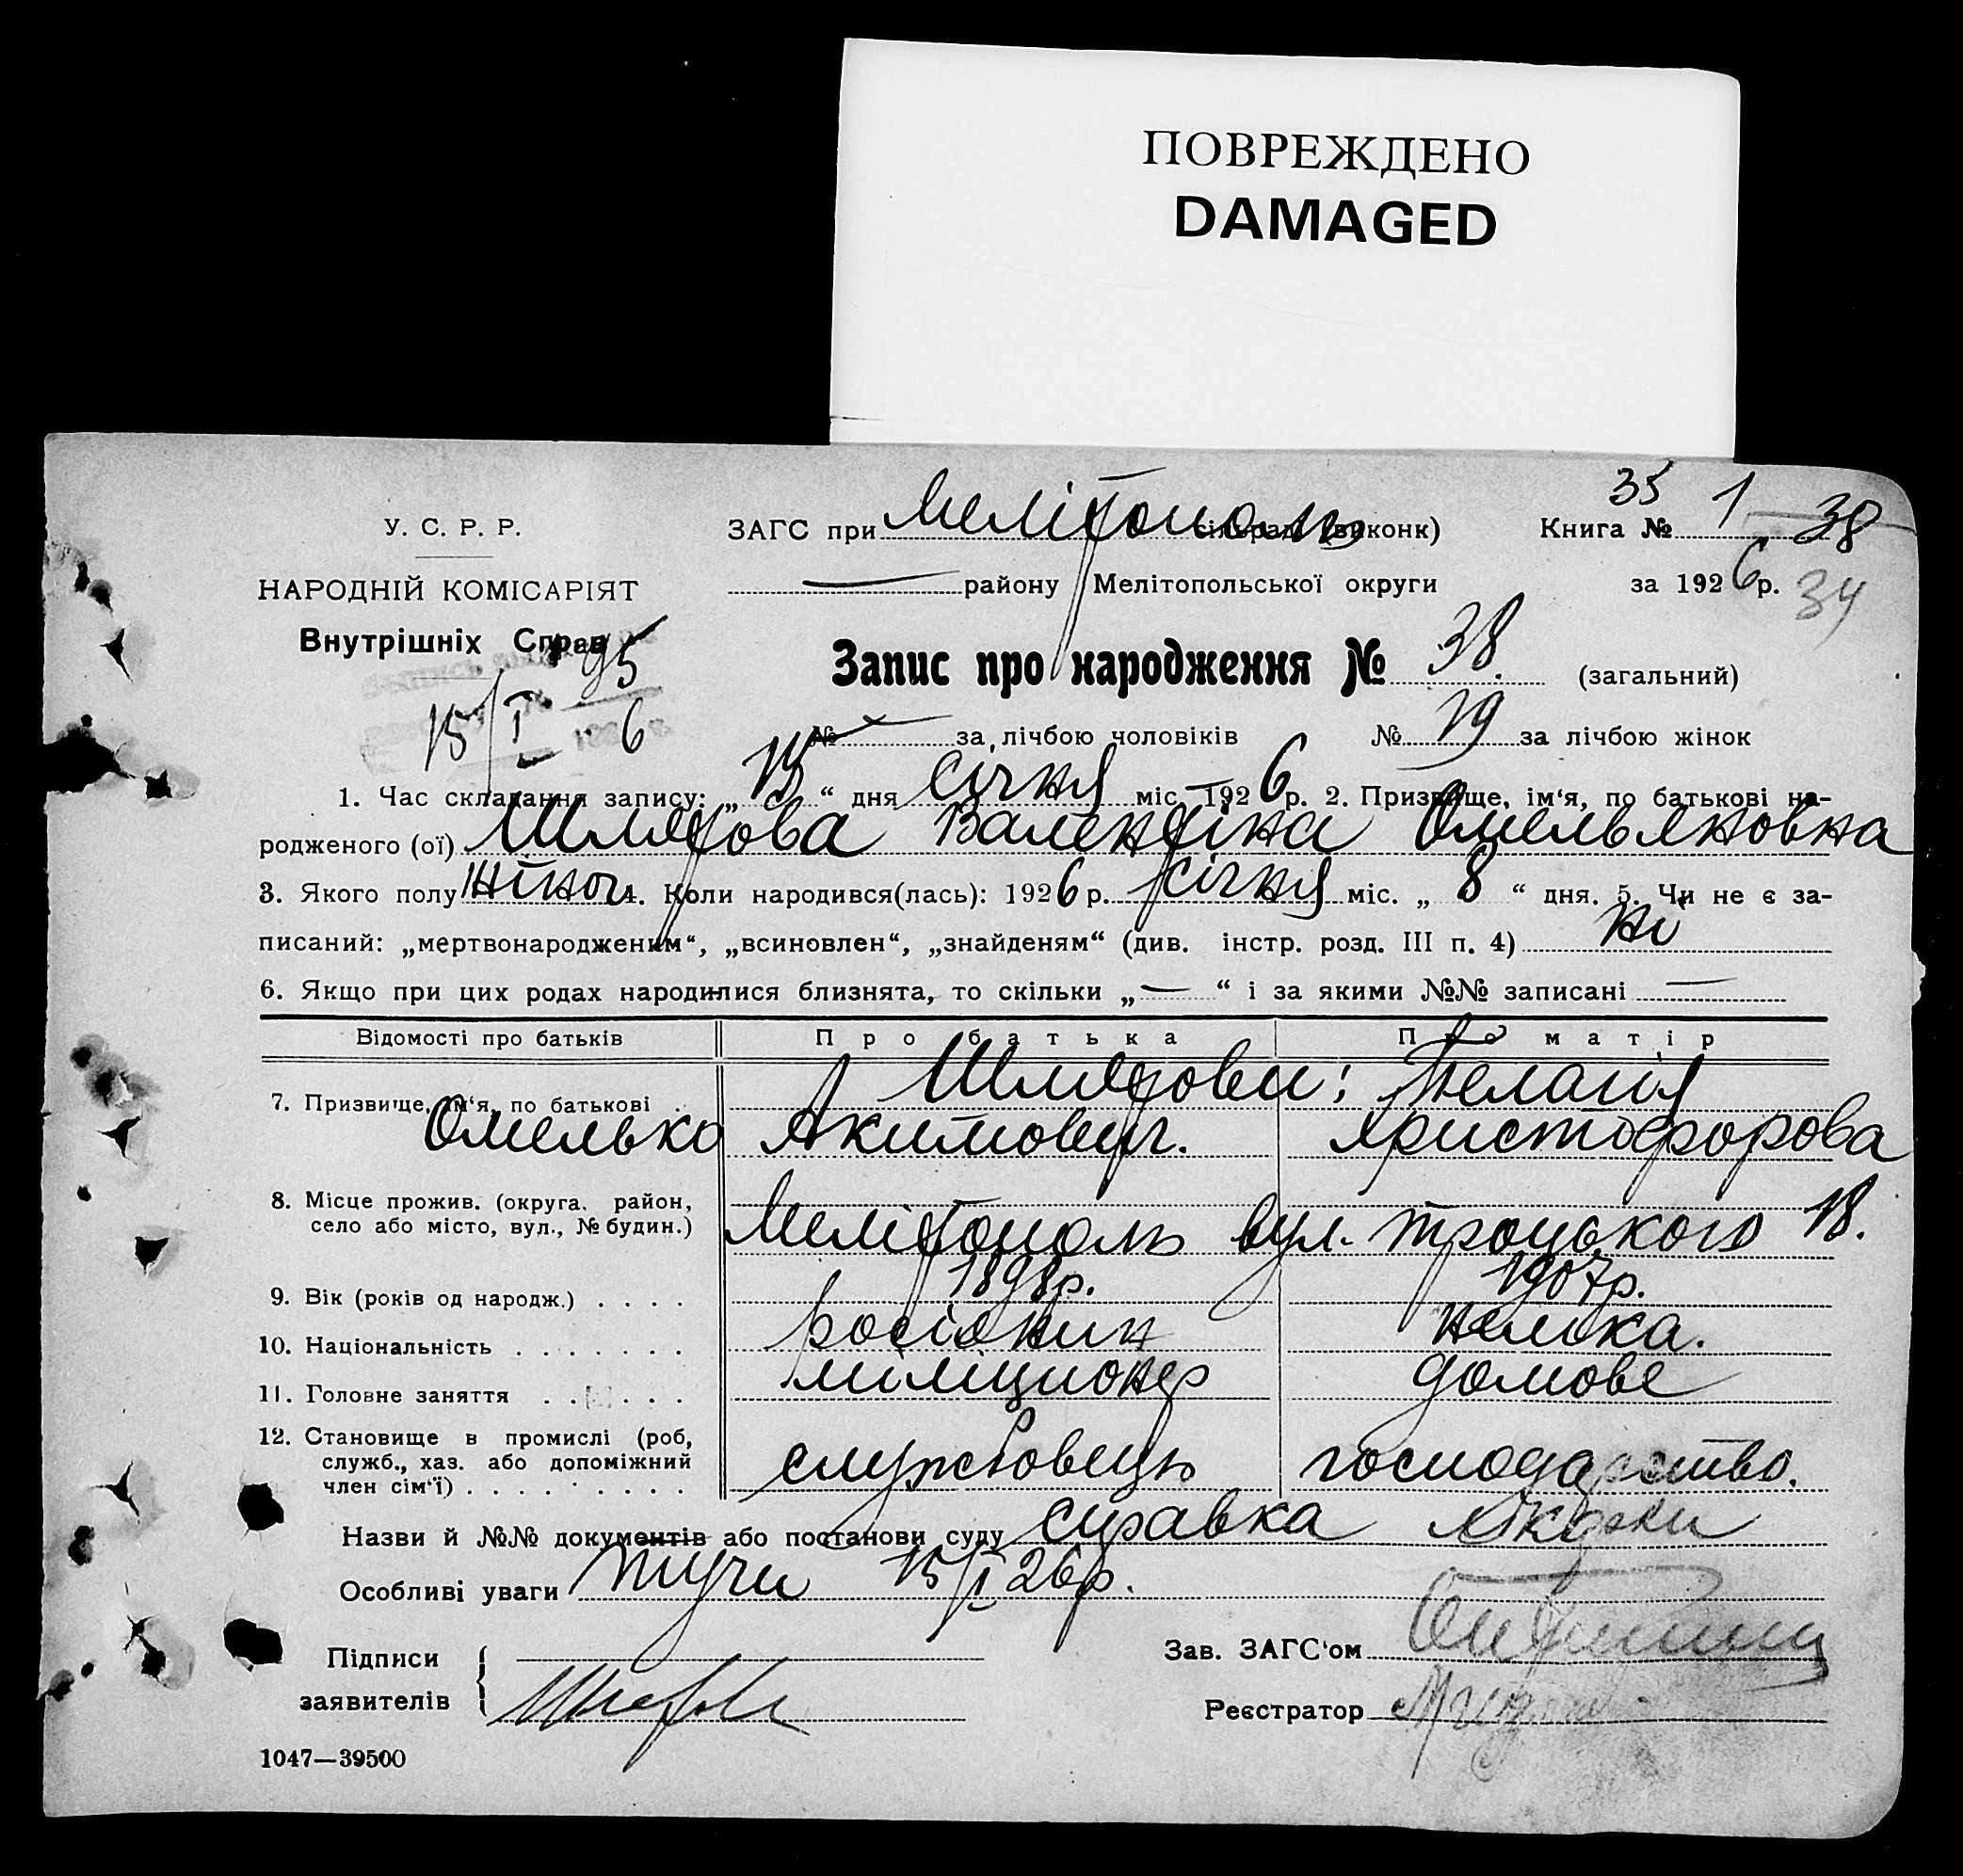 ПОВРЕЖДЕНО
DAMAGED
35 1 38
У. С. Р. Р.
ЗАГС при Мелітополь сільраді (виконк)
Книга №
НАРОДНІЙ КОМІСАРІЯТ
— району Мелітопольської округи
за 1926 р. 34
Внутрішніх Справ
95
15/I 6
Запис про народження № 38. (загальний)
№ — за лічбою чоловіків № 19 за лічбою жінок
1. Час складання запису: „15“ дня січня міс. 1926 р. 2. Призвище, ім‘я, по батькові на-
родженого (ої) Валентіна Омельяновна
3. Якого полу жіноч 4. Коли народився(лась): 1926 р. січня міс. „8“ дня. 5. Чи не є за-
писаний: „мертвонародженим“, „всиновлен“, „знайденям“ (див. інстр. розд. III п. 4) ні
6. Якщо при цих родах народилися близнята, то скільки „—“ і за якими №№ записані —
Відомості про батьків Про батька Про матір
7. Призвище, ім‘я, по батькові . Пелагія
Омелько Акимович. Христофорова
8. Місце прожив. (округа, район,
село або місто, вул., № будин.)
Мелітополь вул. Троцького 18.
9. Вік (років од народж.) . . . . 1898р. 1907р.
10. Національність . . . . . . . росіянин немка.
11. Головне заняття . . . . . . міліционер домове
12. Становище в промислі (роб,
служб., хаз. або допоміжний
член сім‘ї) . . . . . . . . . . службовець господарство.
Назви й №№ документів або постанови суду справка Акуш
Особливі уваги 15/I 26р.
Підписи
заявителів
Зав. ЗАГС‘ом
Реєстратор
1047—39500